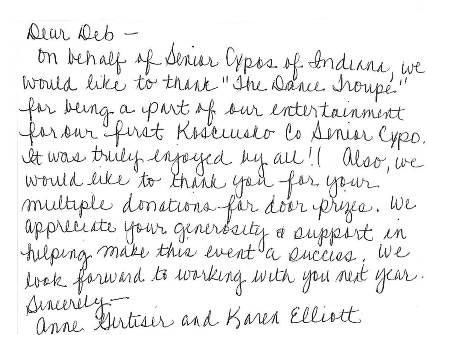 Dear Deb –
On behalf of Senior Expos of Indiana, we
would like to thank "The Dance Troupe"
for being a part of our entertainment
for our first Kosciusko Co Senior Expo.
It was truly enjoyed by all!! Also, we
would like to thank you for your
multiple donations for door prizes. We
appreciate your generosity & support in
helping make this event a success. We
look forward to working with you next year.
Sincerely –
Anne Girtiser and Karen Elliott